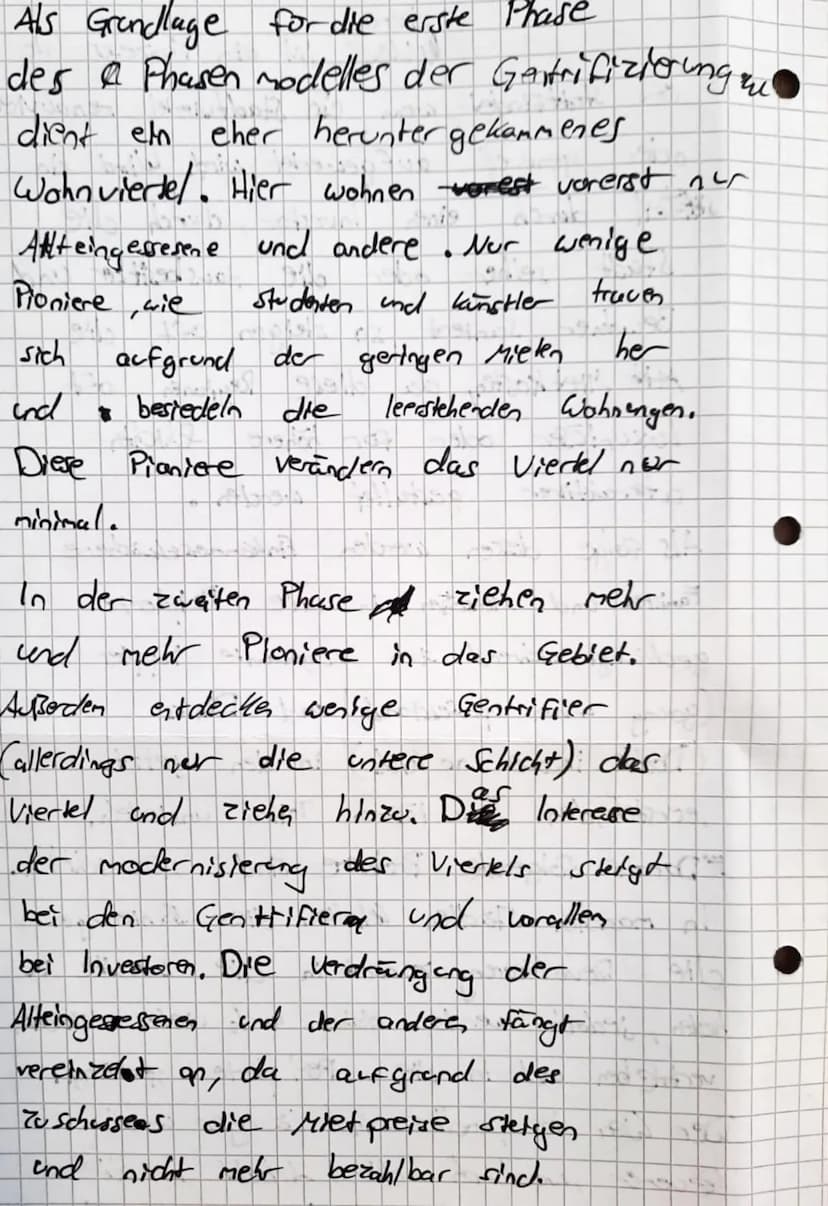 Als Grundlage für die erste Phase
des Phasenmodelles der Gentrifizierung zu
dient ein eher heruntergekommenes
Wohnviertel. Hier wohnen vorerst nur
Alteingesesene und andere. Nur wenige
Pioniere, wie Studenten und Künstler trauen
sich aufgrund der geringen Mieten her
und besiedeln die leerstehenden Wohnungen.
Diese Pioniere verändern das Viertel nur
minimal.
In der zweiten Phase ziehen mehr
und mehr Pioniere in das Gebiet.
Außerdem entdecken wenige Gentrifier
(allerdings nur die untere Schicht) das
Viertel und ziehen hinzu. Das Interese
der modernisierung des Viertels steigt
bei den Genttrifiern und vorallem
bei Investoren. Die Verdrängung der
Alteingesessenen und der anderen fängt
vereinzelt an, da aufgrund des
Zuschusses die Mietpreise steigen
und nicht mehr bezahlbar sind.